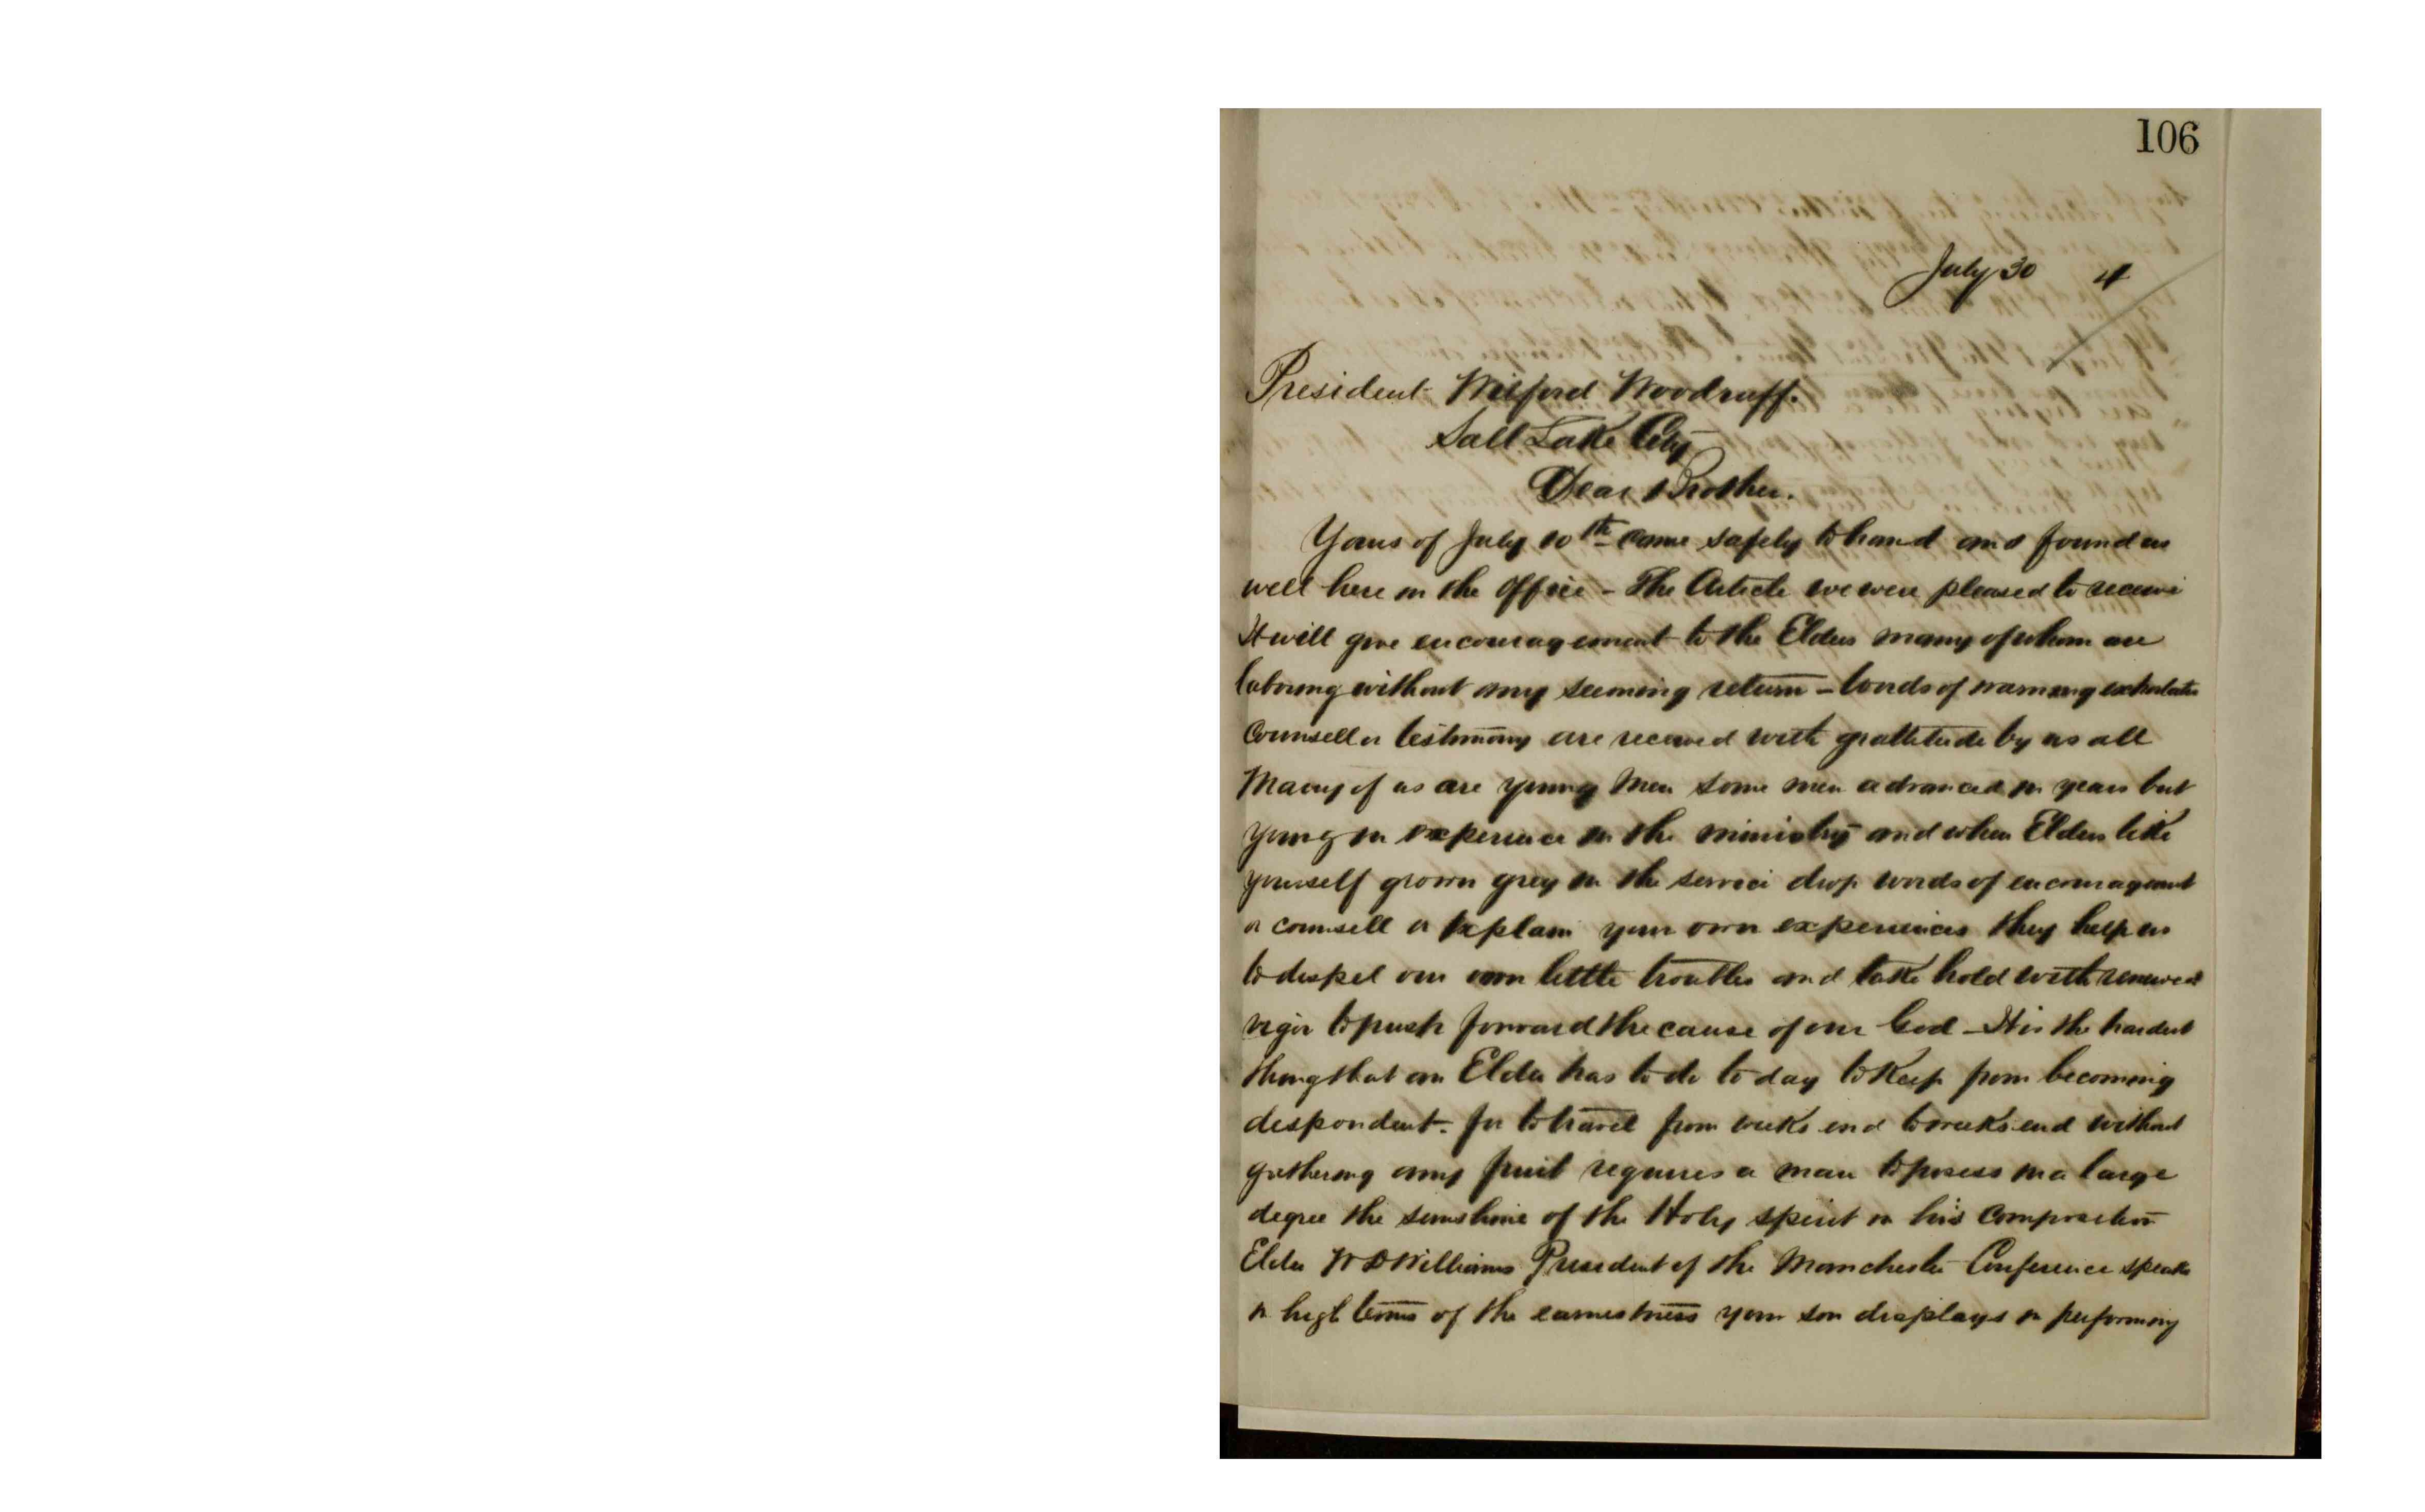 106
July 30 4
President Wilford Woodruff.
Salt Lake City
Dear Brother.
Yours of July 10th came safely to hand and found us
well here in the office - The Article we were pleased to receive
It will give encouragement to the Elders many of whom are
laboring without any seeming return - words of warning exhortation
counsell or testimony are received with grattitude by us all
Many of us are young men some men advanced in years but
young in experience in the ministry and when Elders like
yourself grown grey in the service drop words of encouragement
or counsell or explain your own experiences they help us
to dispel our own little troubles and take hold with renewed
vigor to push forward the cause of our God - It is the hardest
thing that an Elder has to do to day to keep from becoming
despondent. for to travel from weeks end to weeks end without
gathering any fruit requires a man to posess in a large
degree the sunshine of the Holy spirit in his composition
Elder W D Williams President of the Manchester Conference speaks
in high terms of the earnestness your son displays in performing